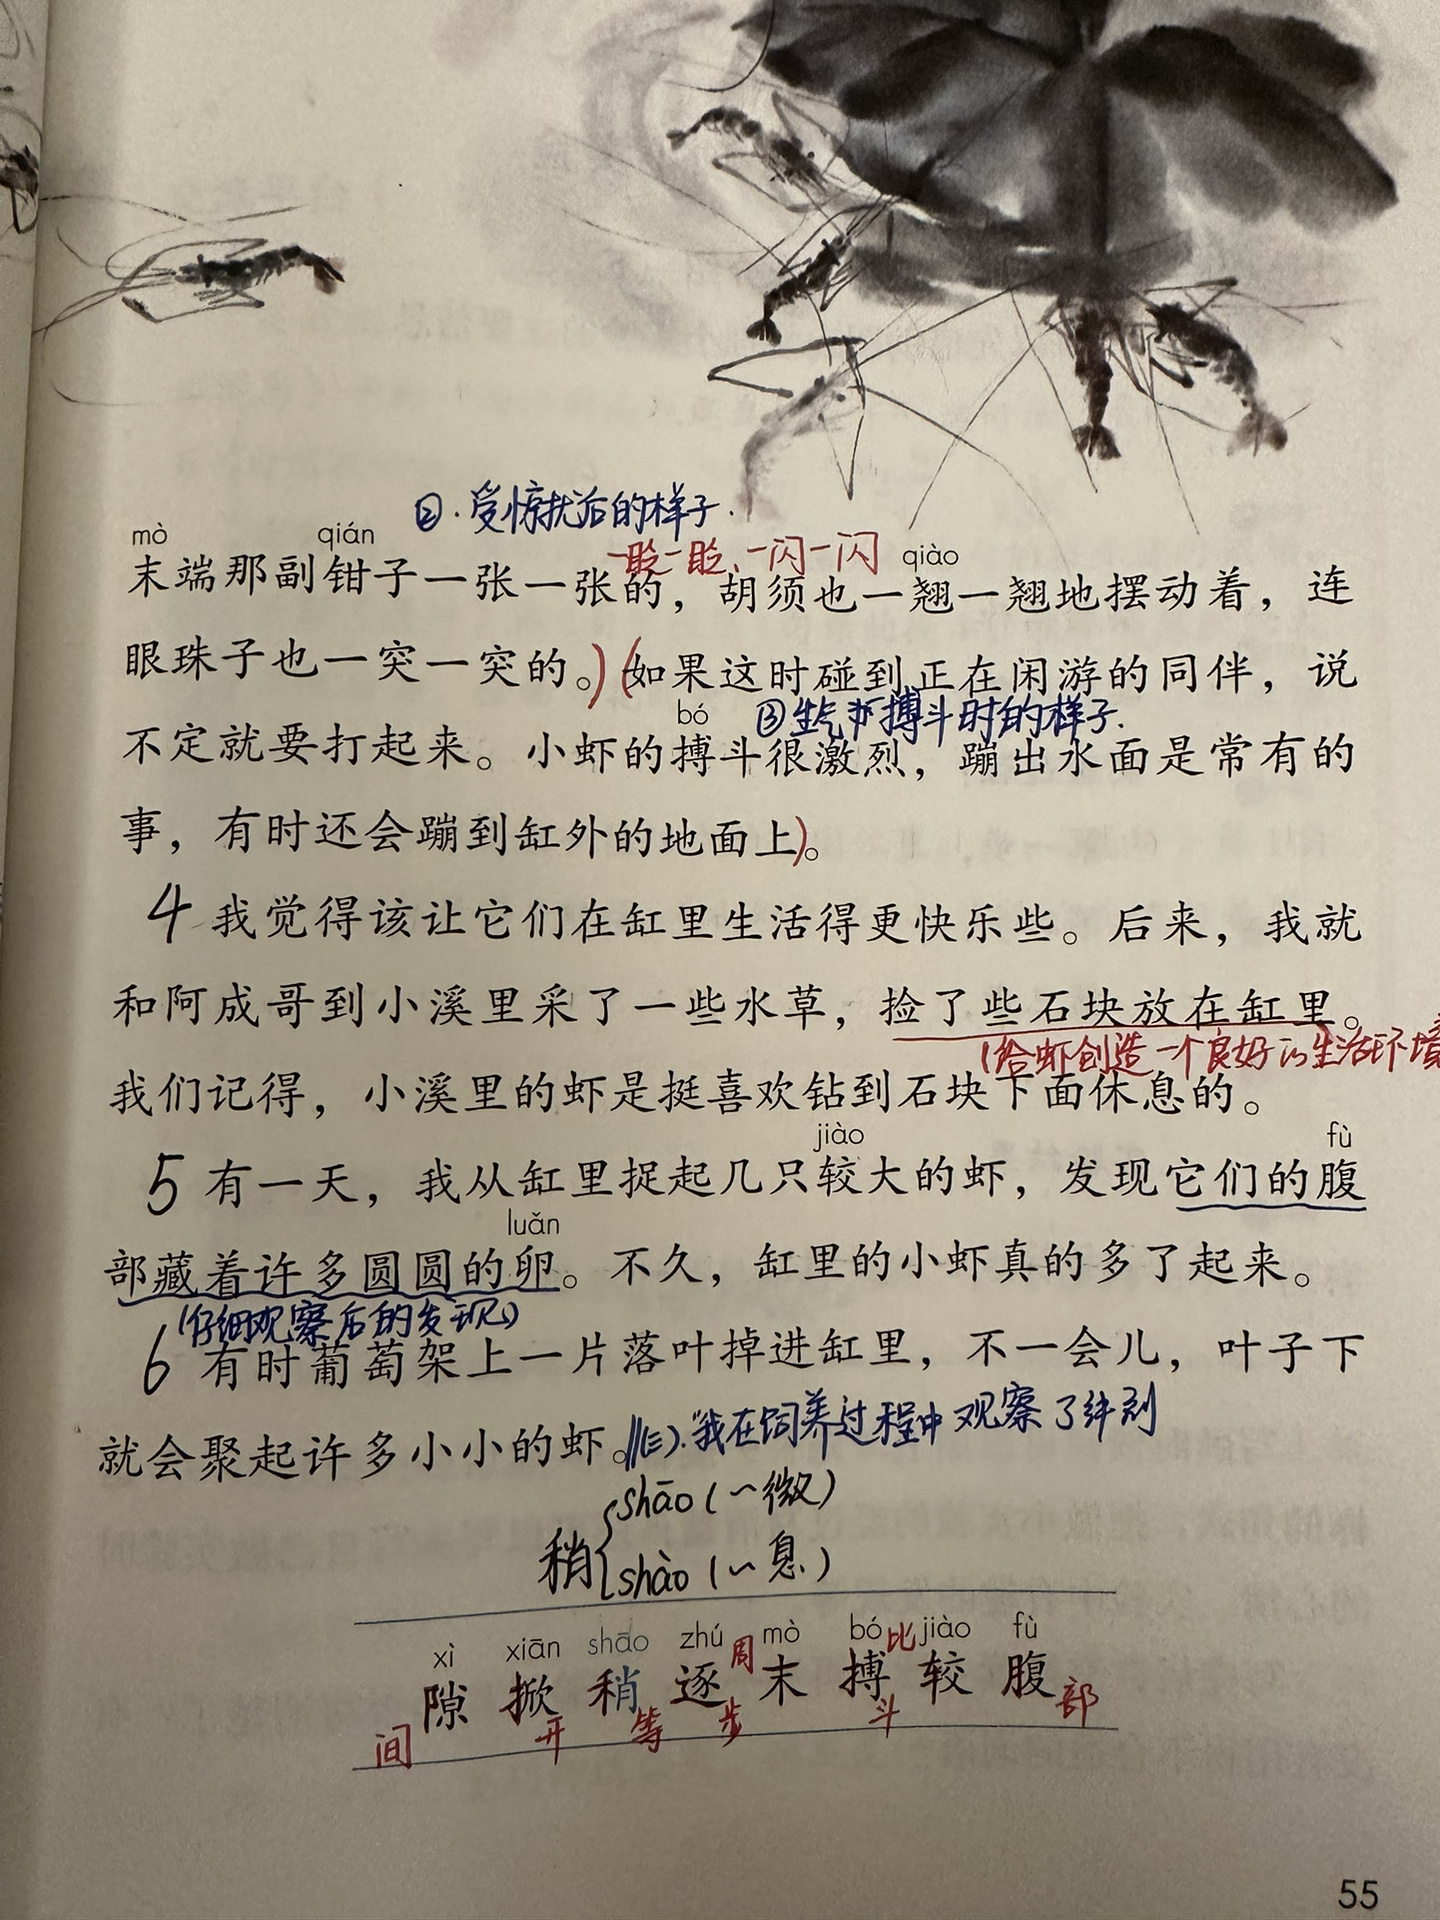 ②.受惊扰后的样子.
mò qián
一眨一眨、一闪一闪 qiào
末端那副钳子一张一张的，胡须也一翘一翘地摆动着，连
眼珠子也一突一突的。)(如果这时碰到正在闲游的同伴，说
bó ③生气和搏斗时的样子.
不定就要打起来。小虾的搏斗很激烈，蹦出水面是常有的
事，有时还会蹦到缸外的地面上)。
4 我觉得该让它们在缸里生活得更快乐些。后来，我就
和阿成哥到小溪里采了一些水草，捡了些石块放在缸里。
(给虾创造一个良好的生活环境
我们记得，小溪里的虾是挺喜欢钻到石块下面休息的。
jiào fù
5 有一天，我从缸里捉起几只较大的虾，发现它们的腹
luǎn
部藏着许多圆圆的卵。不久，缸里的小虾真的多了起来。
(仔细观察后的发现)
6 有时葡萄架上一片落叶掉进缸里，不一会儿，叶子下
就会聚起许多小小的虾。//(三).“我在饲养过程中观察了
shāo (~微)
稍
shào (~息)
xì xiān shāo zhú mò bó jiào fù
隙 掀 稍 逐 周末 搏 比较 腹
间 开 等 步 斗 部
55